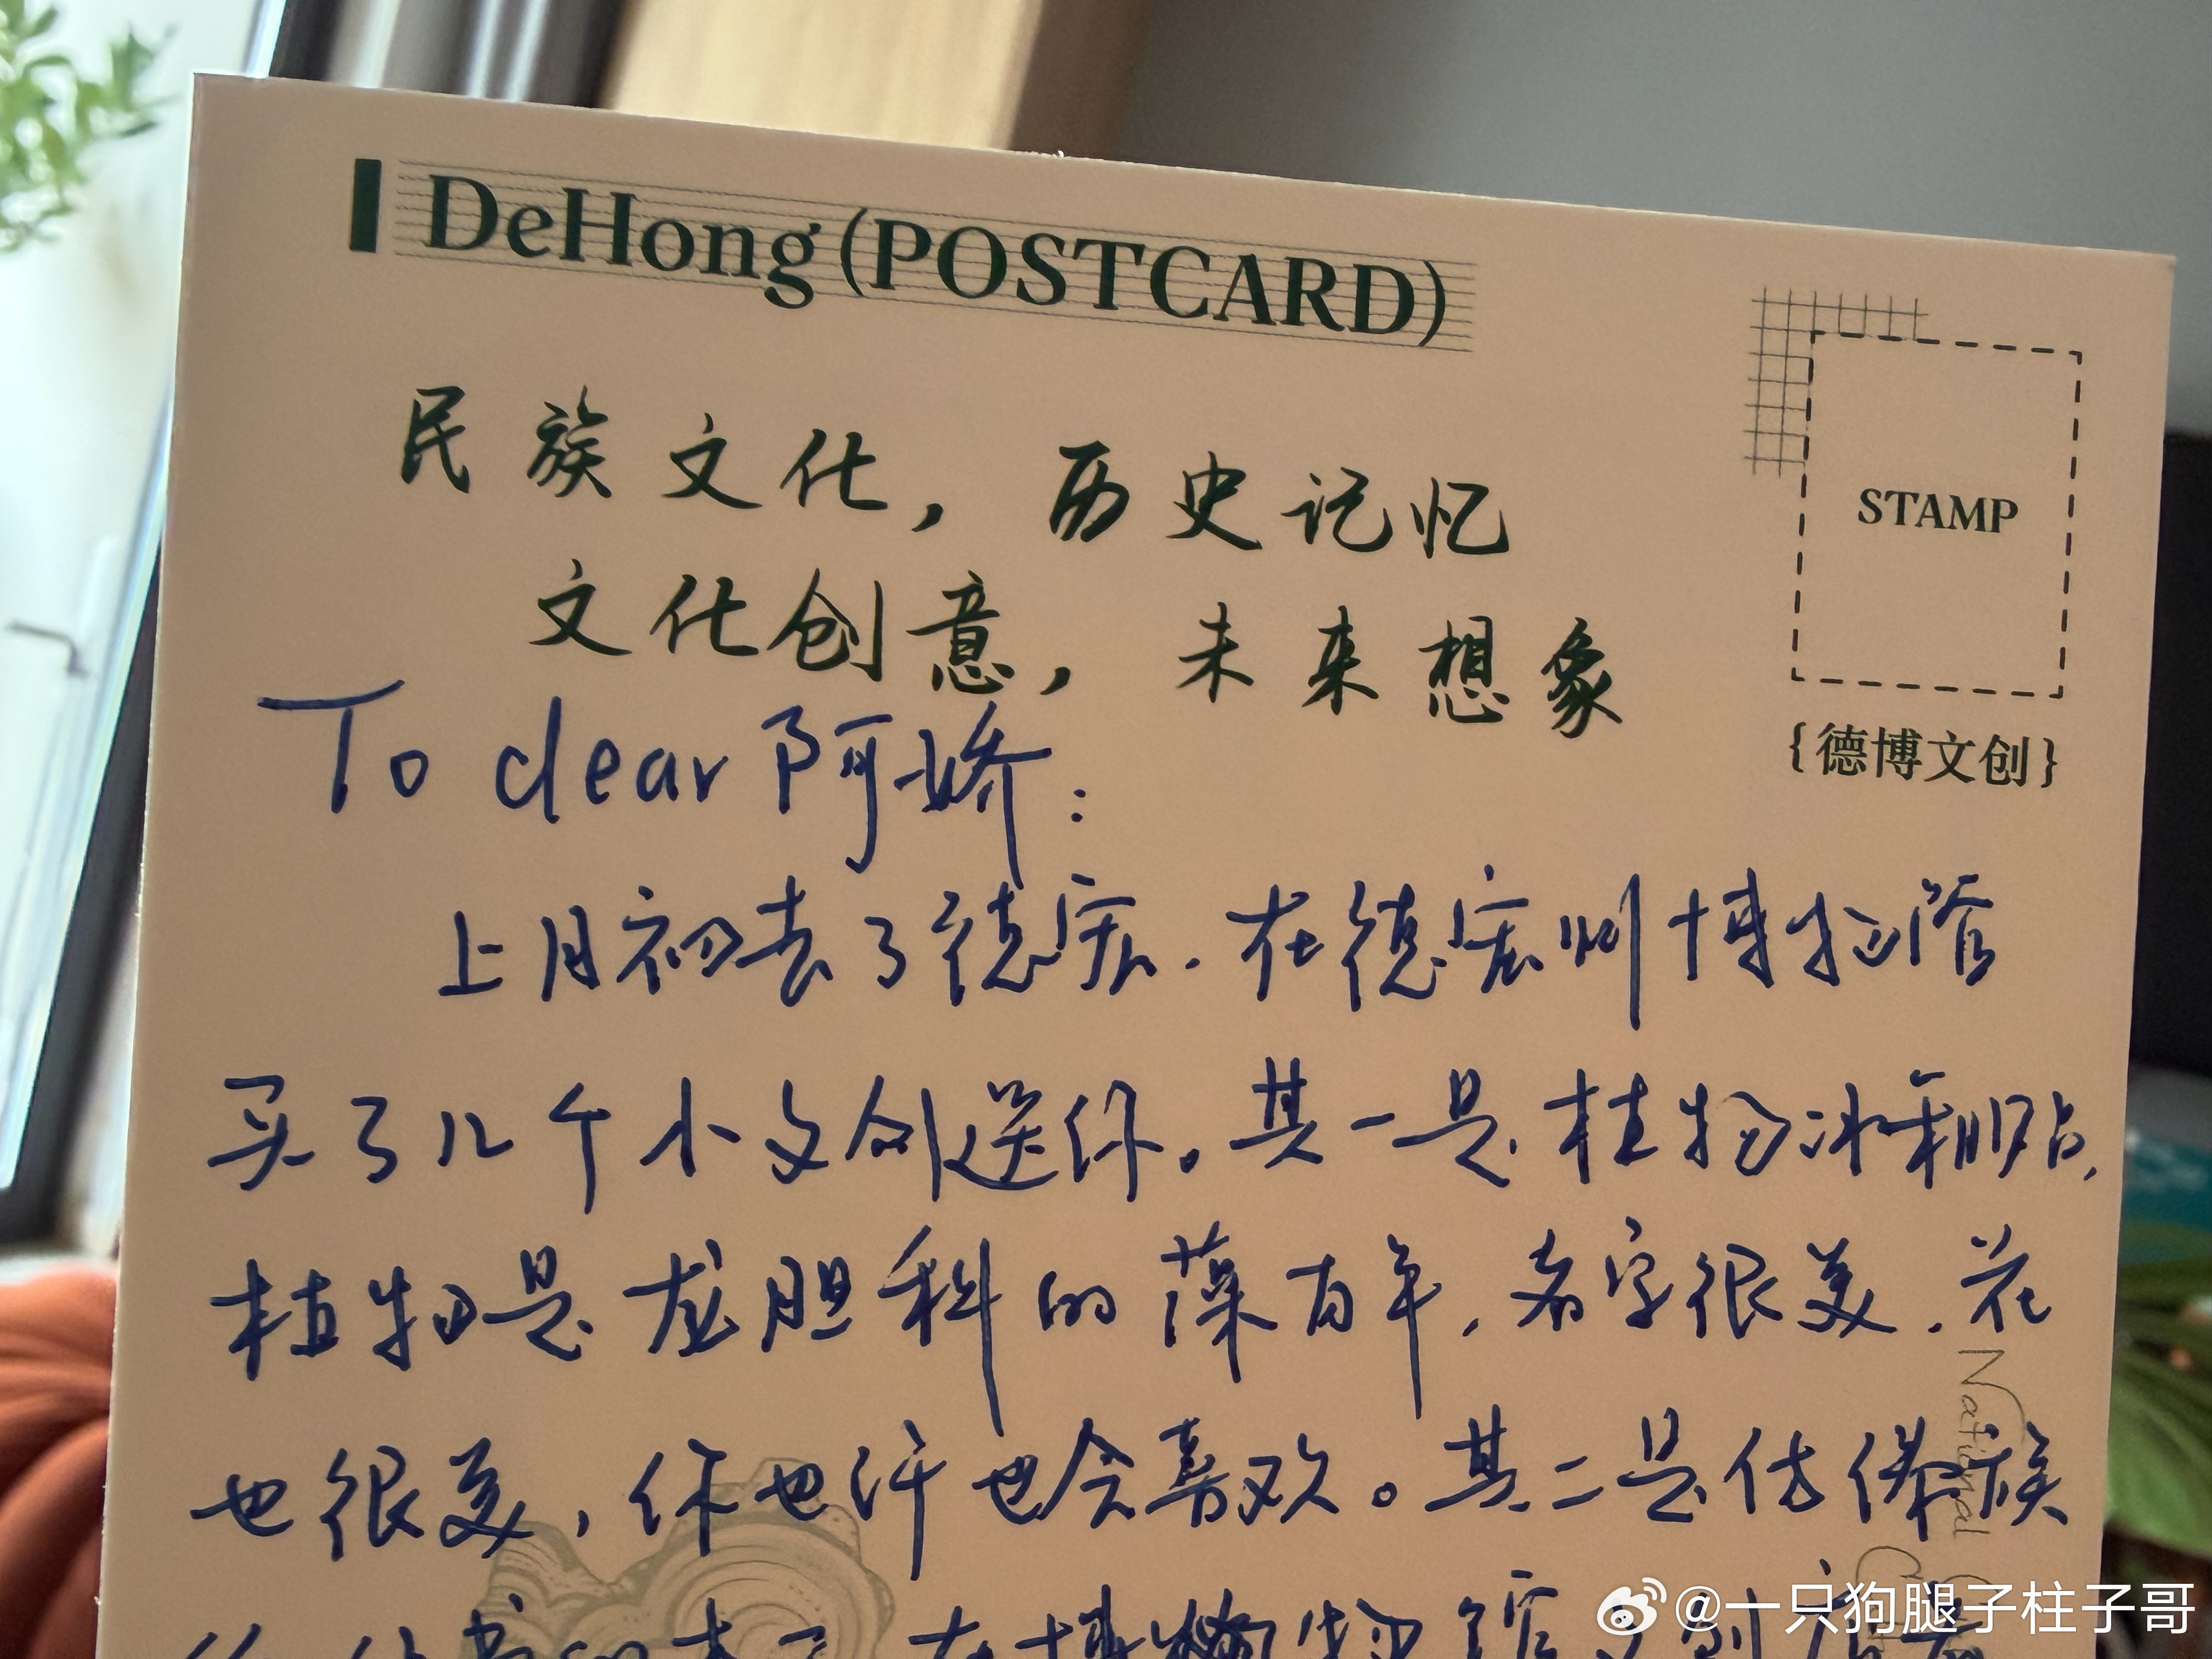 DeHong (POSTCARD)
民族文化，历史记忆
文化创意，未来想象
STAMP
{德博文创}
To dear 阿娇：
上月初去了德宏.在德宏州博物馆
买了几个小文创送你。其一是植物冰箱贴,
植物是龙胆科的藻百年,名字很美.花
也很美,你也许也会喜欢。其二是仿傣族
National
@一只狗腿子柱子哥